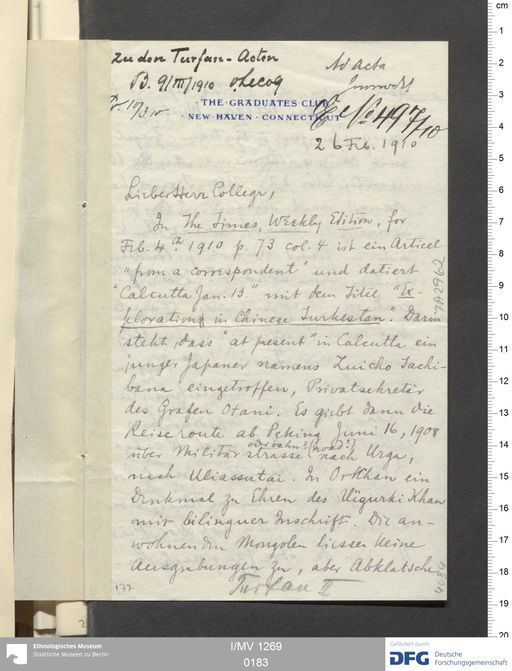 zu den Turfan-Acten
B. 9/III/1910 v. Lecoq
Ad Acta
THE · GRADUATES CLUB
NEW · HAVEN · CONNECTICUT
E No 497/10
26 Feb. 1910
Lieber Herr College,
In The Times, Weekly Edition, for
Feb. 4th 1910 p. 73 col. 4 ist ein Articel
"from a correspondent" und datiert
"Calcutta Jan. 13." mit dem Titel "Ex-
plorations in Chinese Turkestan". Darin
steht, dass "at present" in Calcutta ein
junger Japaner namens Zuicho Tachi-
bana eingetroffen, Privatsekretär
des Grafen Otani. Es giebt dann die
Reiseroute ab Peking Juni 16, 1908
oder bahn?
über Militärstrasse nach Urga,
nach Uliassutai. In Orkhan ein
Denkmal zu Ehren des Uigurki Khan
mit bilinguer Inschrift. Die an-
wohnenden Mongolen liessen keine
Ausgrabungen zu, aber Abklatsche
Turfan II
177
7A2962
cm
1
2
3
4
5
6
7
8
9
10
11
12
13
14
15
16
17
18
19
20
Ethnologisches Museum
Staatliche Museen zu Berlin
I/MV 1269
0183
Gefördert durch
DFG
Deutsche
Forschungsgemeinschaft